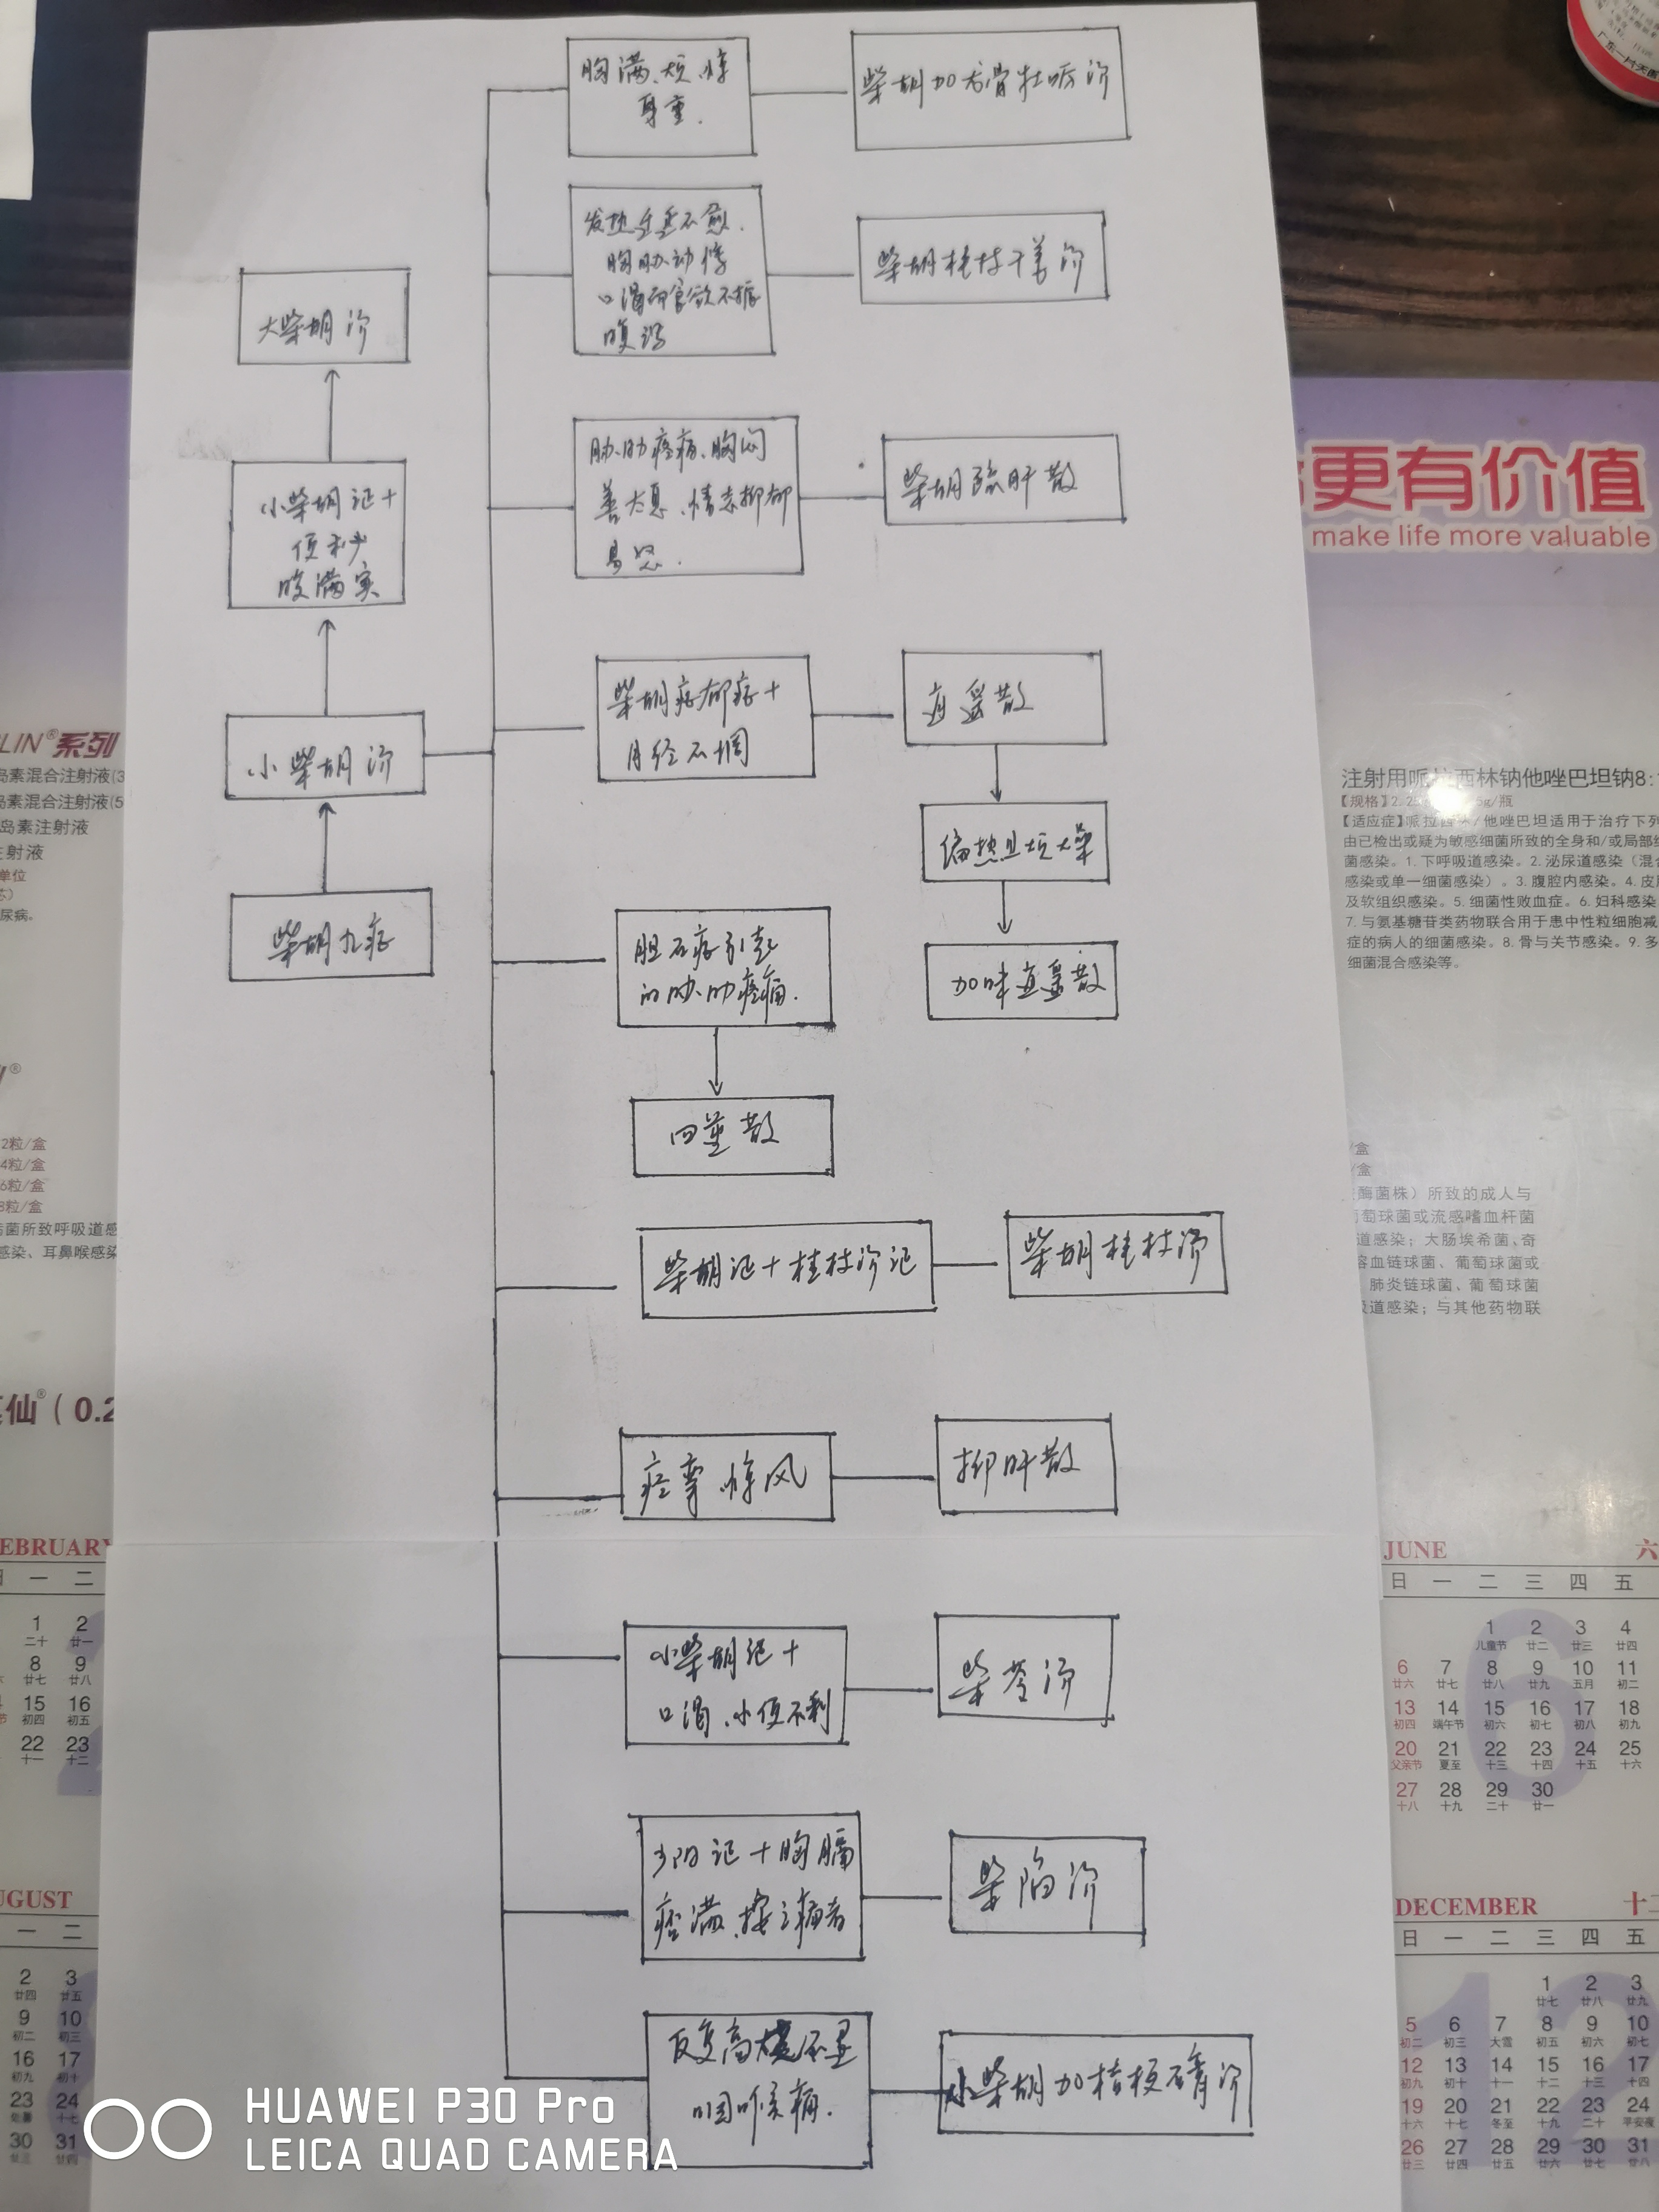 胸满、烦、惊
身重.
柴胡加龙骨牡蛎汤
发热
不愈.
胸胁动悸
口渴而食欲不振
腹泻
柴胡桂枝干姜汤
大柴胡汤
小柴胡证+
便秘
腹满实
胁肋疼痛、胸闷
善太息、情志抑郁
易怒.
柴胡疏肝散
柴胡症郁症+
月经不调
逍遥散
偏热且烦大燥
加味逍遥散
小柴胡汤
柴胡九症
胆石症引起
的胁肋疼痛.
四逆散
柴胡证+桂枝汤证
柴胡桂枝汤
痉挛.惊风
抑肝散
小柴胡证+
口渴、小便不利
柴苓汤
少阳证+胸膈
痞满、按之痛者
柴陷汤
反复高烧不退
咽喉痛.
小柴胡加桔梗石膏汤
更有价值
make life more valuable
LIN®系列
岛素混合注射液(3
岛素混合注射液(5
岛素注射液
注射液
单位
芯)
尿病。
2粒/盒
4粒/盒
6粒/盒
8粒/盒
菌所致呼吸道感
感染、耳鼻喉感染
仙®(0.2
注射用哌拉西林钠他唑巴坦钠8:
【规格】2.25
5g/瓶
【适应症】哌拉西林/他唑巴坦适用于治疗下列
由已检出或疑为敏感细菌所致的全身和/或局部细
菌感染。1.下呼吸道感染。2.泌尿道感染（混合
感染或单一细菌感染）。3.腹腔内感染。4.皮肤
及软组织感染。5.细菌性败血症。6.妇科感染
7.与氨基糖苷类药物联合用于患中性粒细胞减
症的病人的细菌感染。8.骨与关节感染。9.多
细菌混合感染等。
/盒
/盒
酶菌株）所致的成人与
萄球菌或流感嗜血杆菌
道感染；大肠埃希菌、奇
溶血链球菌、葡萄球菌或
肺炎链球菌、葡萄球菌
吸道感染；与其他药物联
EBRUARY
日 一 二
1 2
二十 廿一
8 9
廿七 廿八
15 16
初四 初五
22 23
十一 十二
UGUST
一 二
2 3
廿四 廿五
9 10
初二 初三
16 17
初九 初十
23 24
处暑 十七
30 31
廿三 廿四
JUNE 六
日 一 二 三 四 五
1 2 3 4
儿童节 廿二 廿三 廿四
6 7 8 9 10 11
廿六 廿七 廿八 廿九 五月 初二
13 14 15 16 17 18
初四 端午节 初六 初七 初八 初九
20 21 22 23 24 25
父亲节 夏至 十三 十四 十五 十六
27 28 29 30
十八 十九 二十 廿一
6
DECEMBER 十二
日 一 二 三 四 五
1 2 3
廿七 廿八 廿九
5 6 7 8 9 10
初二 初三 大雪 初五 初六 初七
12 13 14 15 16 17
初九 初十 十一 十二 十三 十四
19 20 21 22 23 24
十六 十七 冬至 十九 二十 平安夜
26 27 28 29 30 31
廿三 廿四 廿五 廿六 廿七 廿八
12
HUAWEI P30 Pro
LEICA QUAD CAMERA